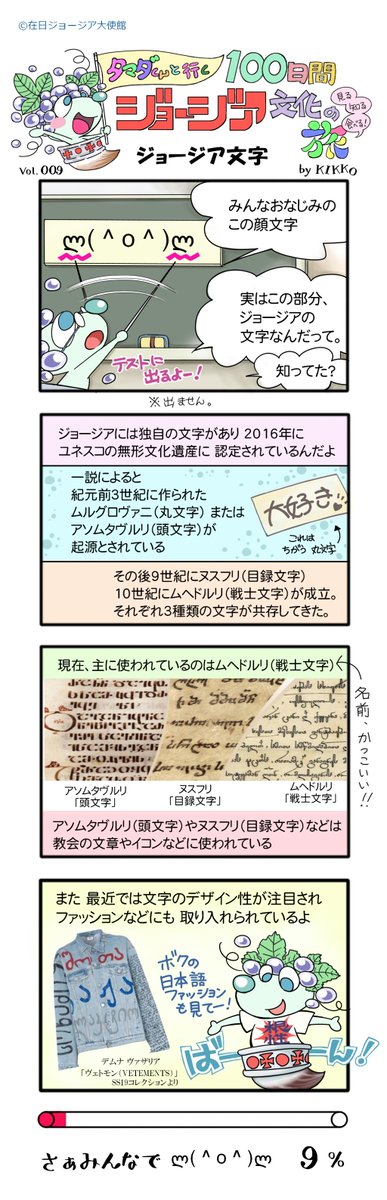 ©在日ジョージア大使館
タマダくんと行く 100日間
ジョージア 文化の旅
見る 知る 食べる!
ジョージア文字
Vol. 009
by KIKKO
みんなおなじみの
この顔文字
ღ(＾o＾)ღ
実はこの部分、
ジョージアの
文字なんだって。
知ってた?
テストに
出るよー!
※出ません。
ジョージアには独自の文字があり 2016年に
ユネスコの無形文化遺産に 認定されているんだよ
一説によると
紀元前3世紀に作られた
ムルグロヴァニ(丸文字) または
アソムタヴルリ(頭文字)が
起源とされている
大好き
これは
ちがう 丸文字
その後9世紀にヌスフリ(目録文字)
10世紀にムヘドルリ(戦士文字)が成立。
それぞれ3種類の文字が共存してきた。
現在、主に使われているのはムヘドルリ(戦士文字)
名前、かっこいい!!
アソムタヴルリ
「頭文字」
ヌスフリ
「目録文字」
ムヘドルリ
「戦士文字」
アソムタヴルリ(頭文字)やヌスフリ(目録文字)などは
教会の文章やイコンなどに使われている
また 最近では文字のデザイン性が注目され
ファッションなどにも 取り入れられているよ
ボクの
日本語
ファッション
も見てー!
ばーーーん!
デムナ ヴァザリア
「ヴェトモン(VETEMENTS)」
SS19コレクションより
さぁみんなで ღ(＾o＾)ღ 9 %